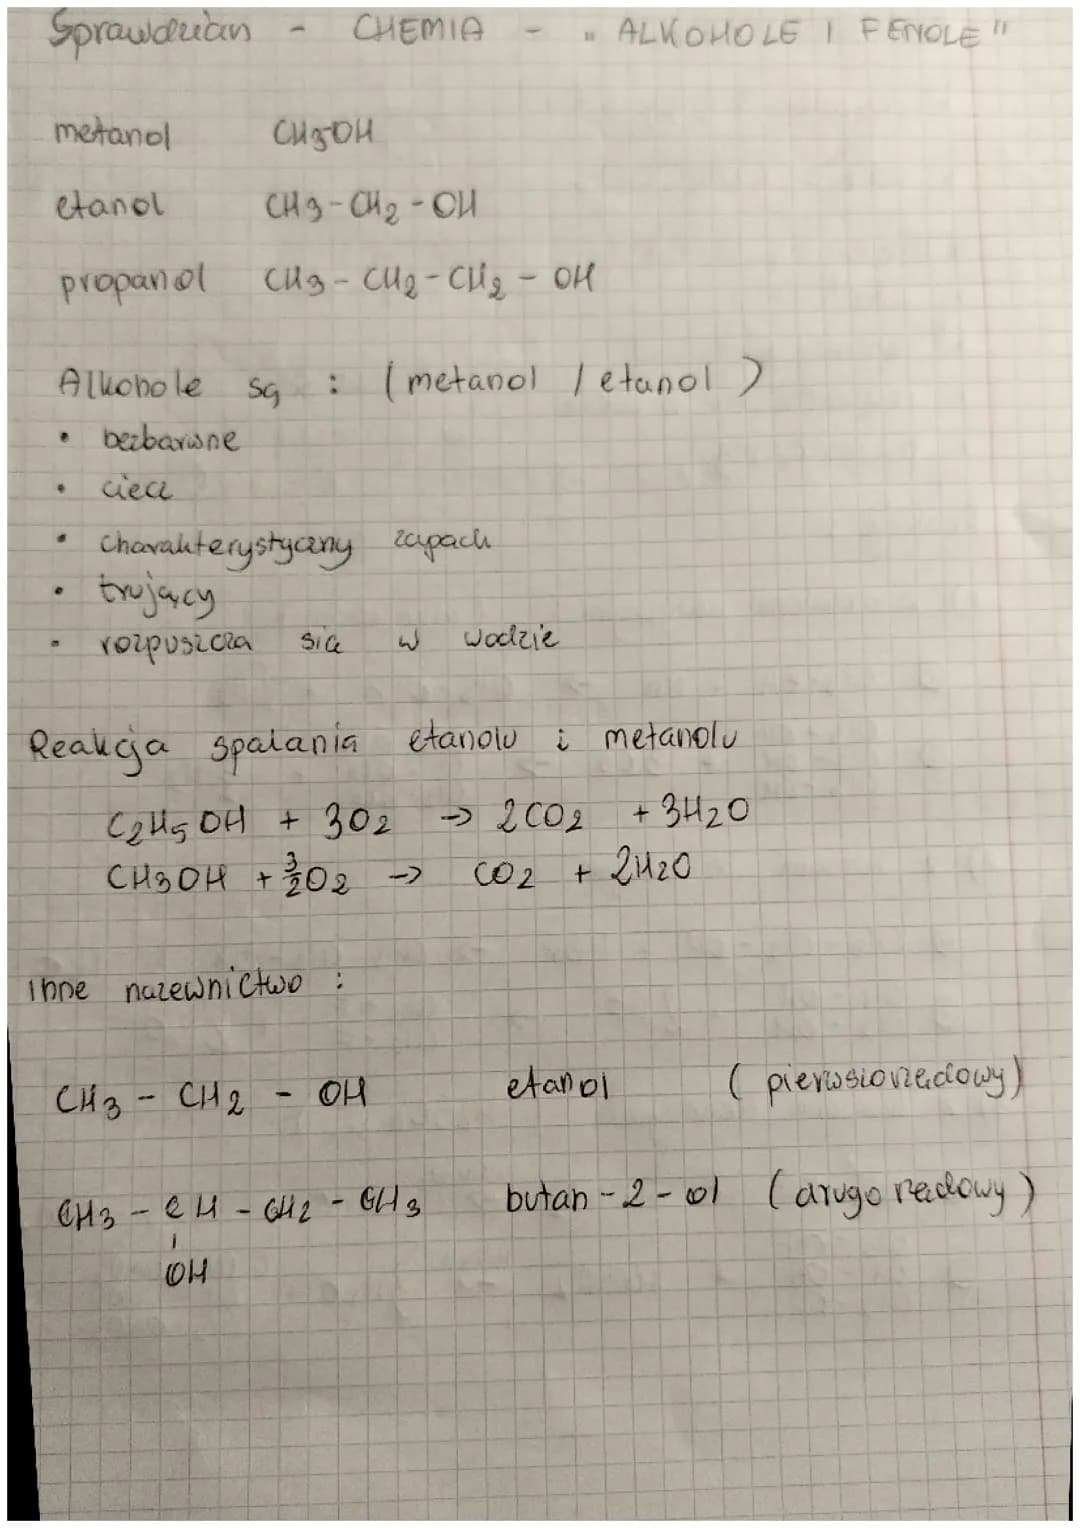 Sprawdzian - CHEMIA - "ALKOHOLE I FENOLE"
metanol CH3OH
etanol CH3-CH2-OH
propanol CH3-CH2-CH2-OH
Alkohole są : (metanol / etanol)
• bezbarwne
• ciecz
• charakterystyczny zapach
• trujący
• rozpuszcza się w wodzie
Reakcja spalania etanolu i metanolu
C2H5OH + 3O2 -> 2CO2 + 3H2O
CH3OH + 3/2O2 -> CO2 + 2H2O
Inne nazewnictwo :
CH3 - CH2 - OH etanol (pierwszorzędowy)
CH3 - CH - CH2 - CH3 butan-2-ol (drugorzędowy)
OH